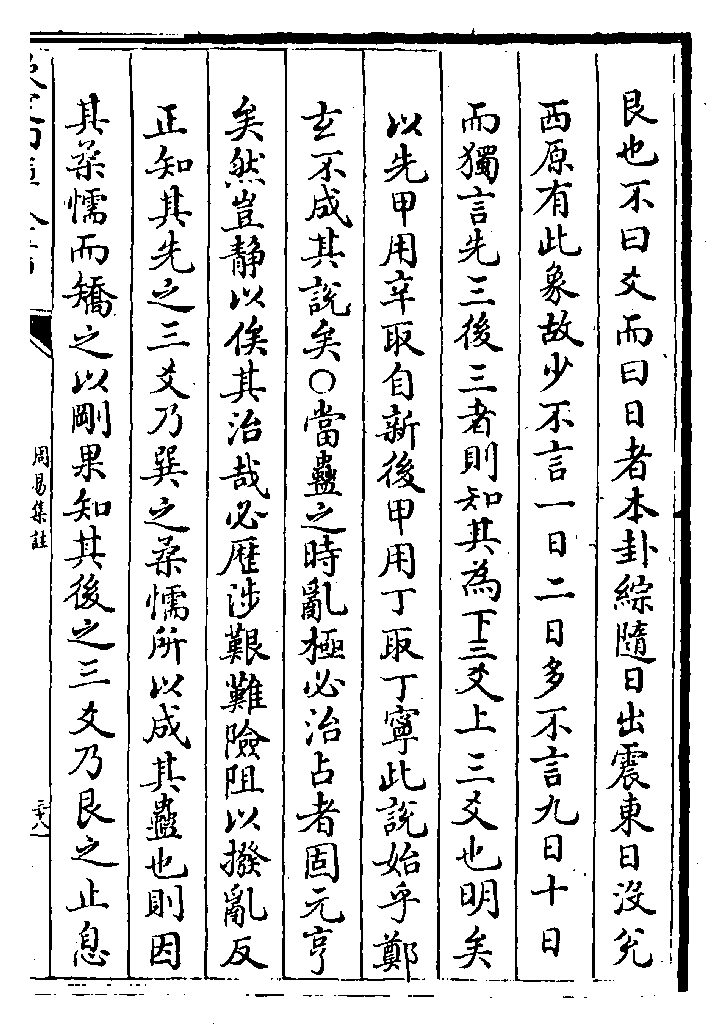 艮也不曰爻而曰日者本卦綜隨日出震東日没兊
西原有此象故少不言一日二日多不言九日十日
而獨言先三後三者則知其為下三爻上三爻也明矣
以先甲用辛取自新後甲用丁取丁寧此說始乎鄭
玄不成其說矣○當蠱之時亂極必治占者固元亨
矣然豈静以俟其治哉必歷涉艱難險阻以撥亂反
正知其先之三爻乃巽之柔懦所以成其蠱也則因
其柔懦而矯之以剛果知其後之三爻乃艮之止息
周易集註